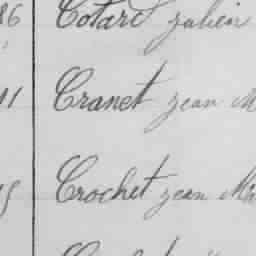 86 Cotard Julien
11 Cranet Jean M
Crochet Jean Ma